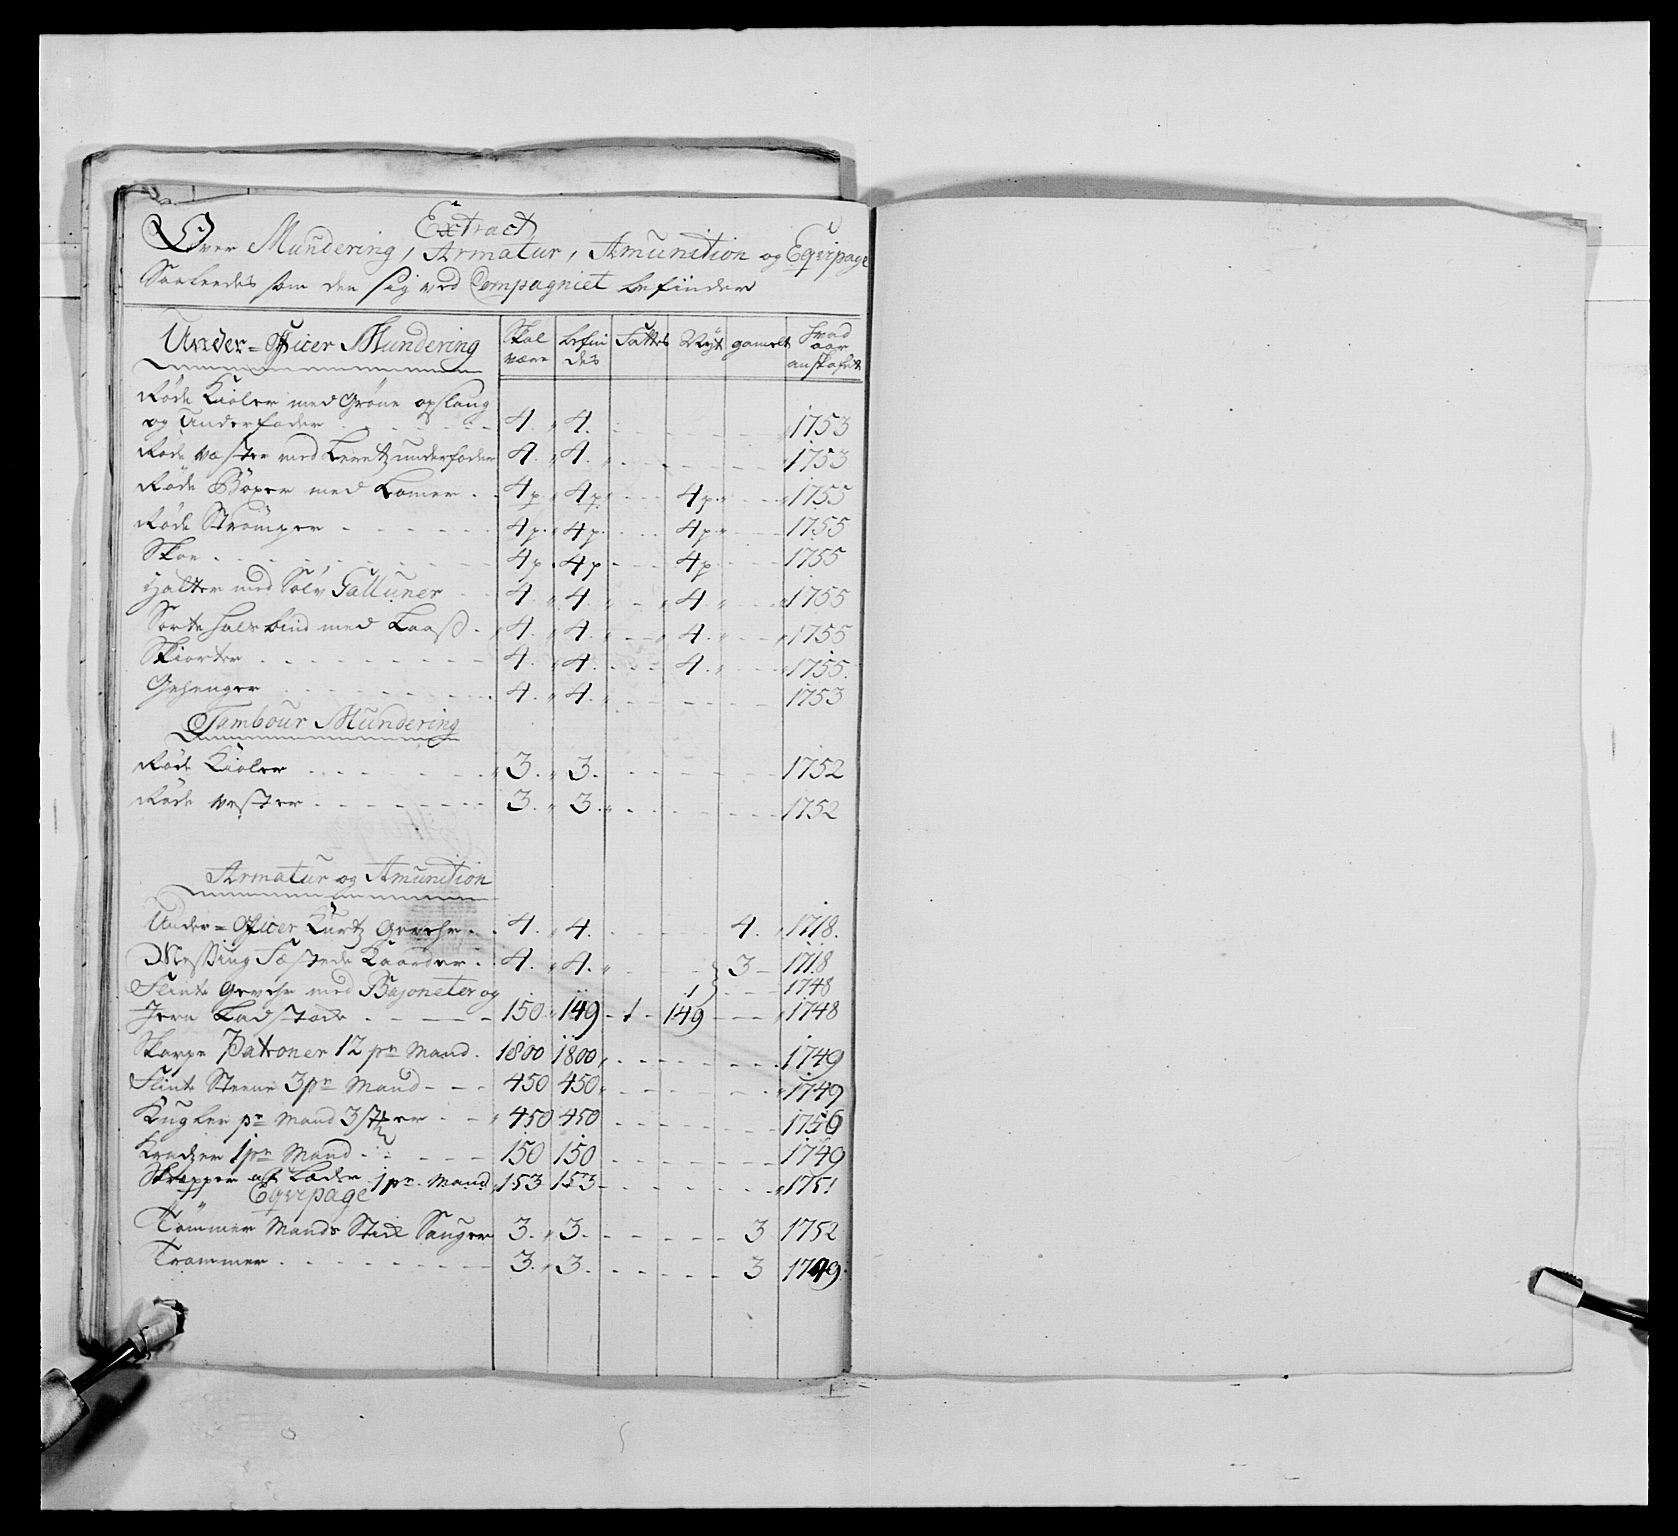 Extract
Over Mundering, Armatur, Amunition og Eqvipage
Saaleedes som den sig ved Compagniet befinder
Under=Officer Mundering | Skal være | befin des | Fattes | Nÿt | gamelt | Hvad aar anskafvet
Røde Kioler med Grøne opslaug
og Underfoder | 4. | 4. | | | | 1753
Røde væster med Lerretz underfoder | 4. | 4. | | | | 1753
Røde Böxer med Lomer | 4p | 4p | | 4p | | 1755
Røde Strömper | 4p. | 4p. | | 4p | | 1755
Skoe | 4p. | 4p | | 4p | | 1755
Hatter med Sølv Galluner | 4. | 4. | | 4. | | 1755
Sorte halsbind med Laaß | 4. | 4. | | 4. | | 1755
Skiorter | 4. | 4. | | 4. | | 1755.
Gehenger | 4. | 4. | | | | 1753
Tambour Mundering
Røde Kioler | 3. | 3. | | | | 1752
Røde vester | 3. | 3. | | | | 1752
Armatur og Amunition
Under=Officer Kurtz Gevehr | 4. | 4. | | | 4. | 1718.
Messing Fæstede Kaarder | 4. | 4. | | | 3 | 1718
Flinte Gevehr med Bajoneter og | | | | 1 | | 1748
Jern Ladstøche | 150 | 149 | 1 | 149 | | 1748
Skarpe Patroner 12 pr Mand | 1800 | 1800 | | | | 1749
Flinte Steene 3 pr Mand | 450 | 450 | | | | 1749
Kugler pr Mand 3 | 450 | 450 | | | | 1756
Kradzer 1 pr Mand | 150 | 150 | | | | 1749
Skrapper af Læder 1 pr Mand | 153 | 153 | | | | 1751
Eqvipage
Tømmer Mands Stich Sauger | 3. | 3. | | | 3 | 1752
Trommer | 3. | 3. | | | 3 | 1749.